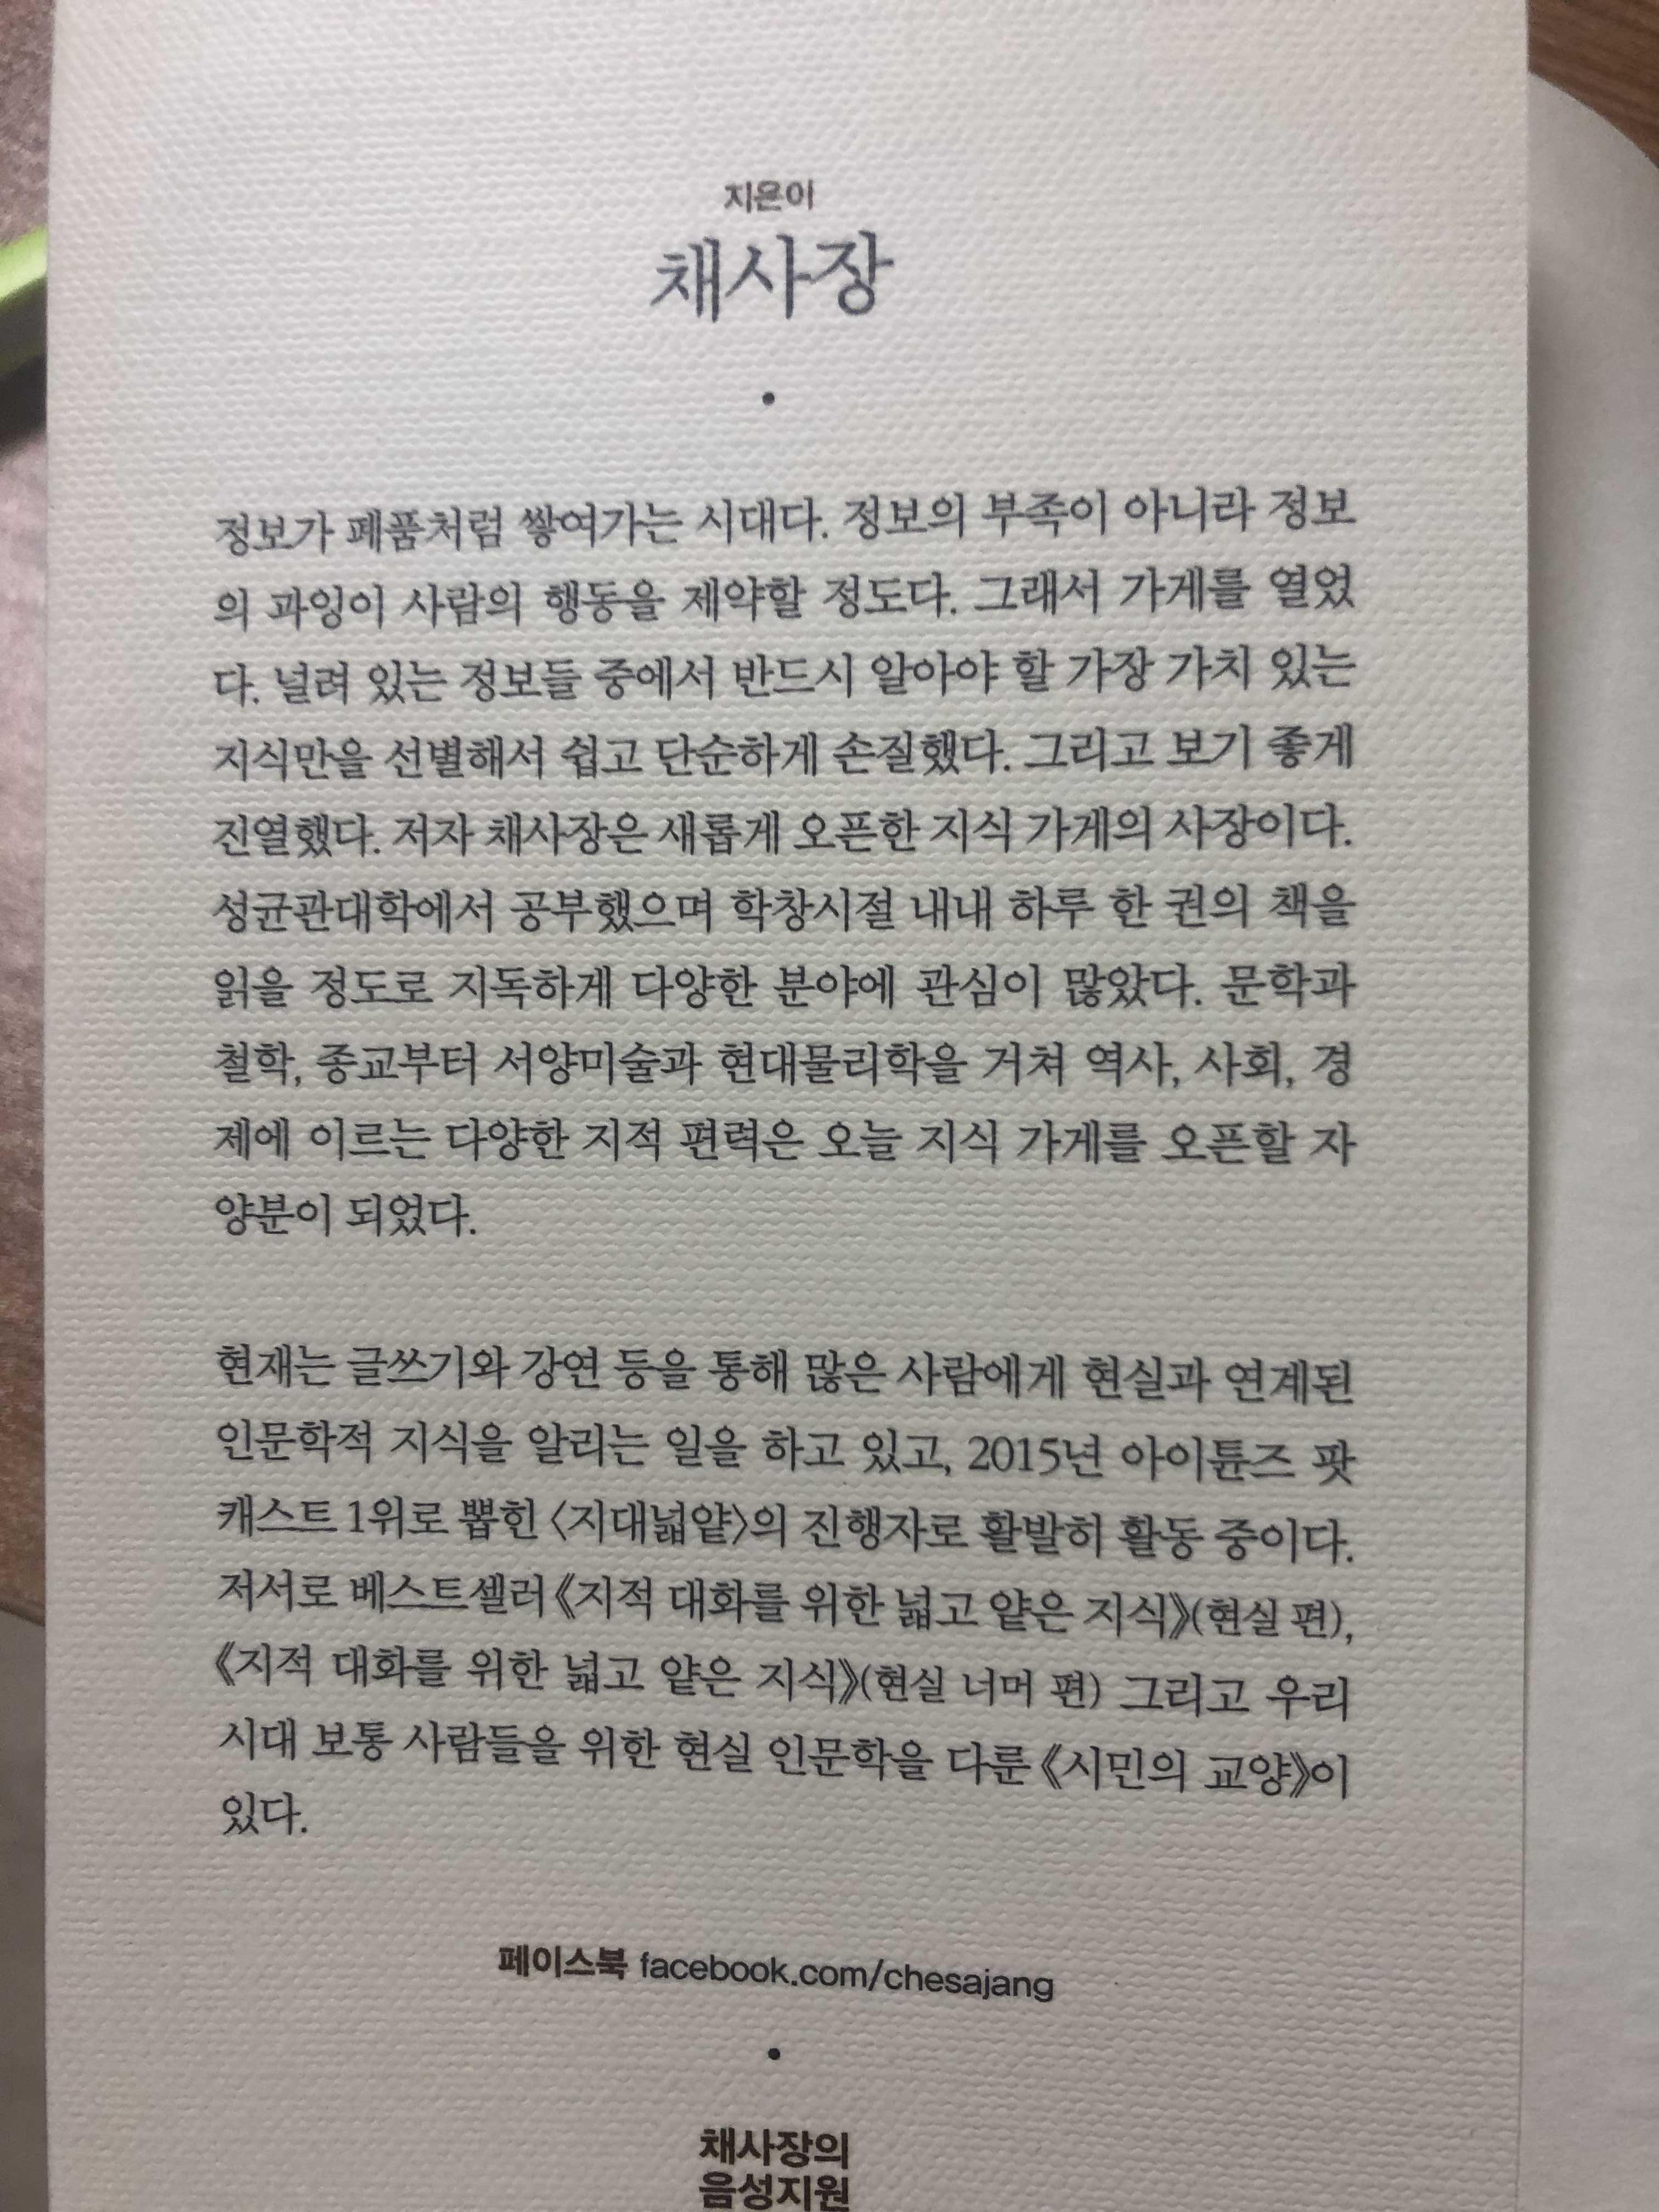 지은이
채사장
•
정보가 폐품처럼 쌓여가는 시대다. 정보의 부족이 아니라 정보
의 과잉이 사람의 행동을 제약할 정도다. 그래서 가게를 열었
다. 널려 있는 정보들 중에서 반드시 알아야 할 가장 가치 있는
지식만을 선별해서 쉽고 단순하게 손질했다. 그리고 보기 좋게
진열했다. 저자 채사장은 새롭게 오픈한 지식 가게의 사장이다.
성균관대학에서 공부했으며 학창시절 내내 하루 한 권의 책을
읽을 정도로 지독하게 다양한 분야에 관심이 많았다. 문학과
철학, 종교부터 서양미술과 현대물리학을 거쳐 역사, 사회, 경
제에 이르는 다양한 지적 편력은 오늘 지식 가게를 오픈할 자
양분이 되었다.
현재는 글쓰기와 강연 등을 통해 많은 사람에게 현실과 연계된
인문학적 지식을 알리는 일을 하고 있고, 2015년 아이튠즈 팟
캐스트 1위로 뽑힌 〈지대넓얕〉의 진행자로 활발히 활동 중이다.
저서로 베스트셀러 《지적 대화를 위한 넓고 얕은 지식》(현실 편),
《지적 대화를 위한 넓고 얕은 지식》(현실 너머 편) 그리고 우리
시대 보통 사람들을 위한 현실 인문학을 다룬 《시민의 교양》이
있다.
페이스북 facebook.com/chesajang
•
채사장의
음성지원